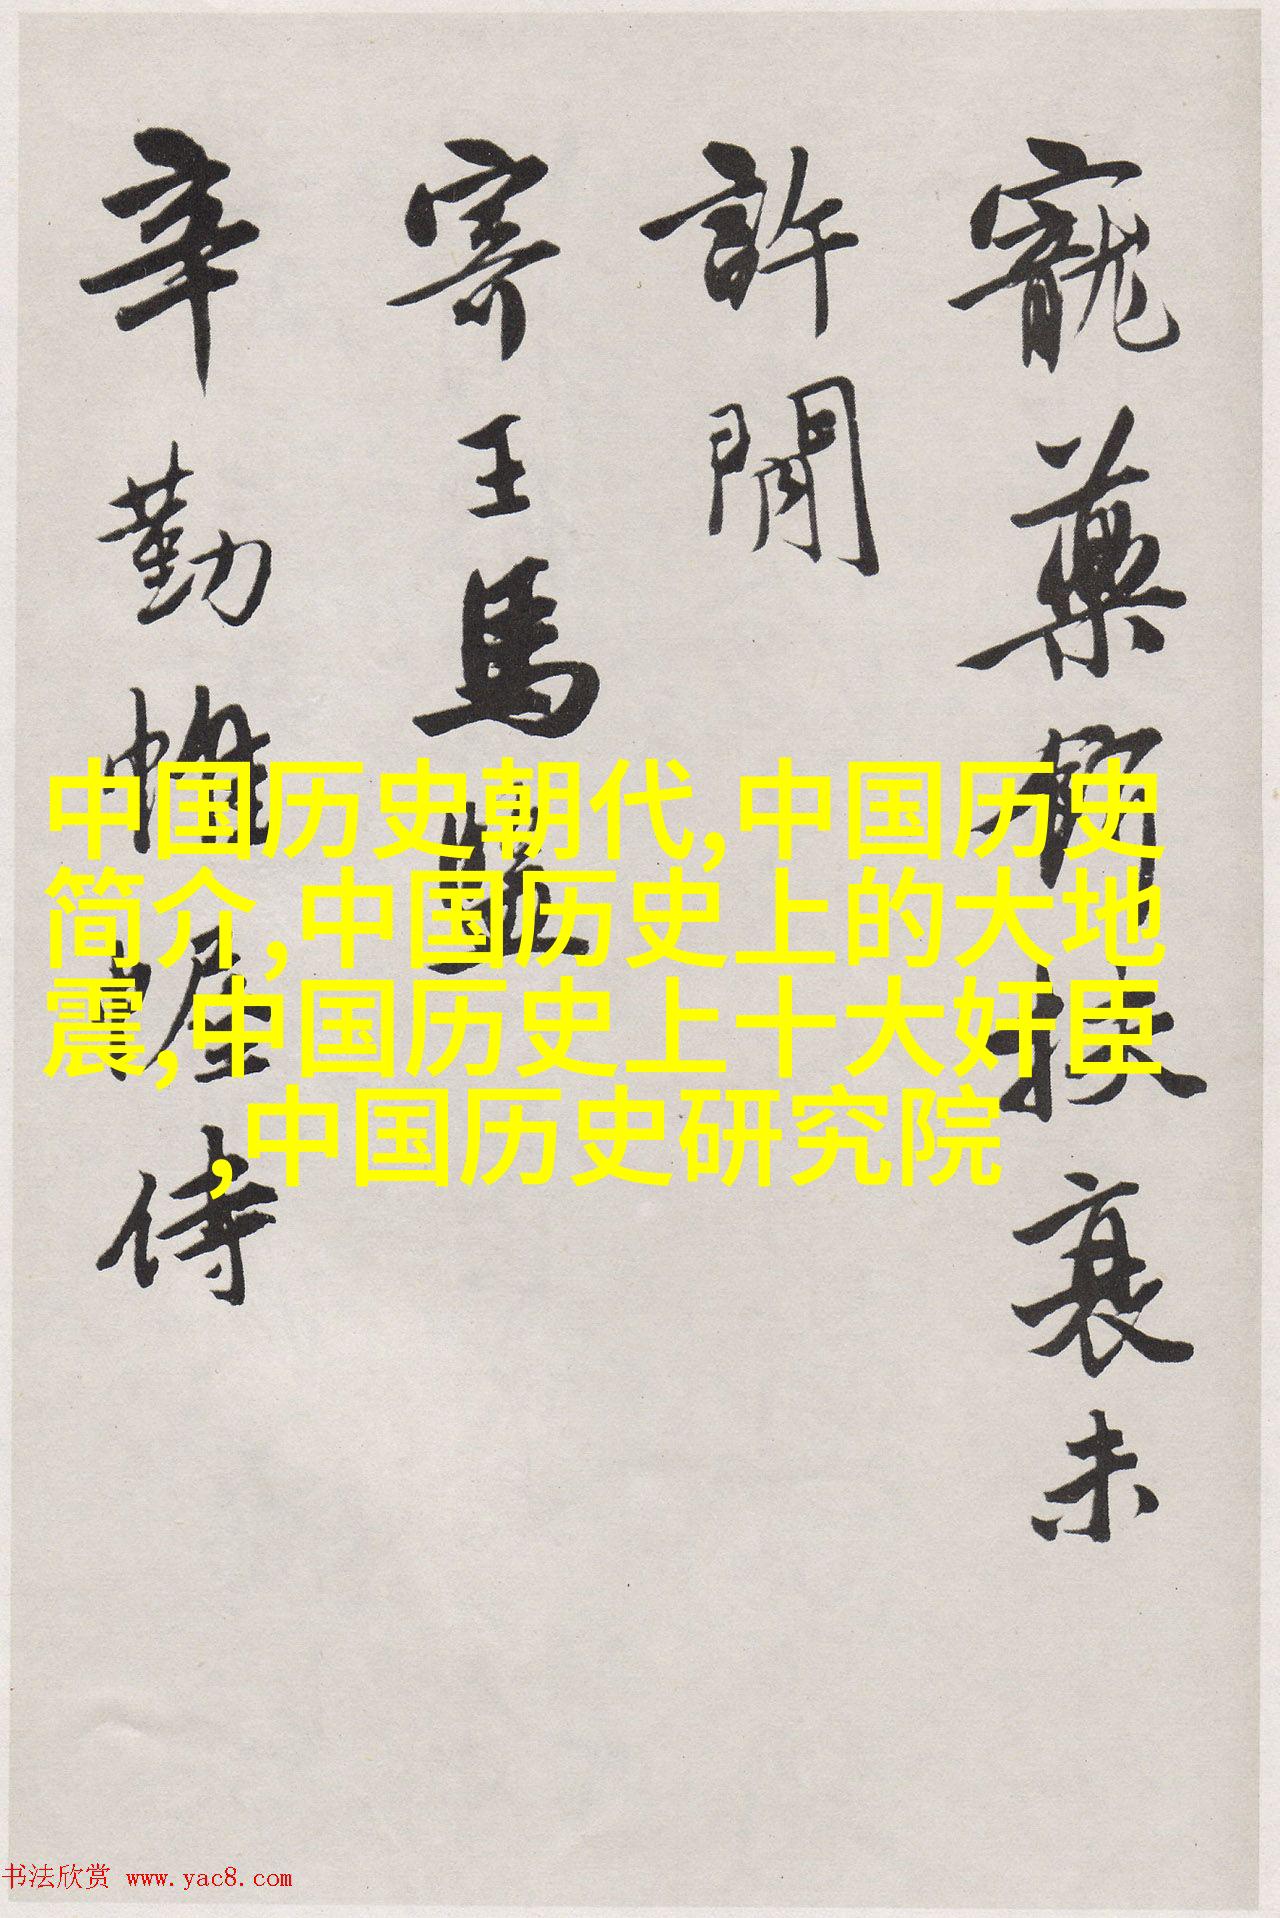 寵藥扶衰未
許閒
寄王馬
辛勤帷幄侍
中国历史朝代,中国历史
简介,中国历史上的大地
震,中国历史上十大奸臣
,中国历史研究院
书法欣赏 www.yac8.com